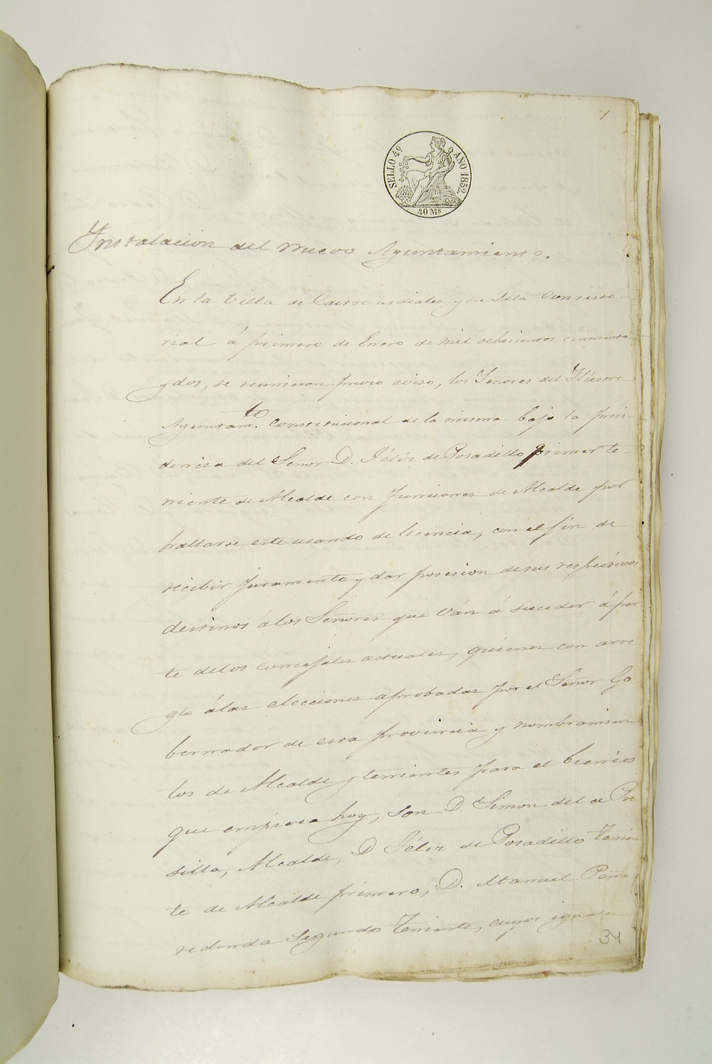 1
SELLO 4º AÑO 1852.
40 Ms
Instalacion del nuevo Ayuntamiento.
En la Villa de Castro urdiales y su Sala Consisto-
rial á primero de Enero de mil ochocientos cincuenta
y dos, se reunieron previo aviso, los Señores del Ilustre
Ayuntam.to Constitucional de la misma bajo la presi-
dencia del Señor D. Félix de Posadillo primer te-
niente de Alcalde con funciones de Alcalde por
hallarse este usando de licencia, con el fin de
recibir juramento y dar posesion de sus respectivos
destinos á los Señores que ván á suceder á par-
te delos concejales actuales, quienes con arre-
glo álas elecciones aprobadas por el Señor Go
bernador de esta provincia y nombramien
tos de Alcalde y tenientes para el bienio
que empieza hoy, son D. Simon de la
Alcalde, D. Félix de Posadillo Tenien
te de Alcalde primero, D. Manuel Peña
redonda Segundo Teniente, cuyos
34